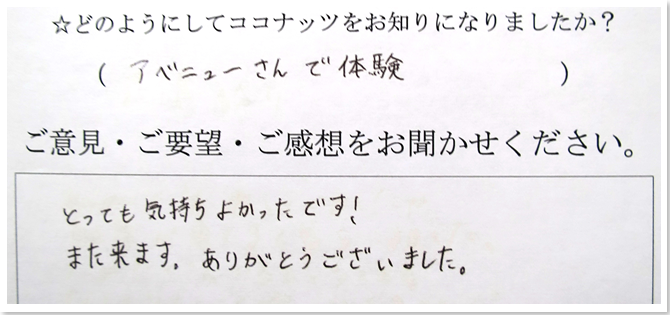 ☆どのようにしてココナッツをお知りになりましたか？
（ アベニューさんで体験 ）
ご意見・ご要望・ご感想をお聞かせください。
とっても気持ちよかったです!
また来ます。ありがとうございました。